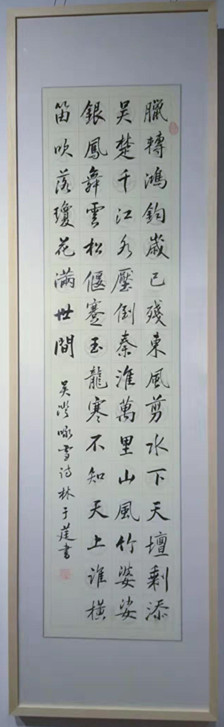 臘轉鴻鈞歲已殘東風剪水下天壇剩添
吳楚千江水壓倒秦淮萬里山風竹婆娑
銀鳳舞雲松偃蹇玉龍寒不知天上誰橫
笛吹落瓊花滿世間
吳澄咏雪詩林于蓙書